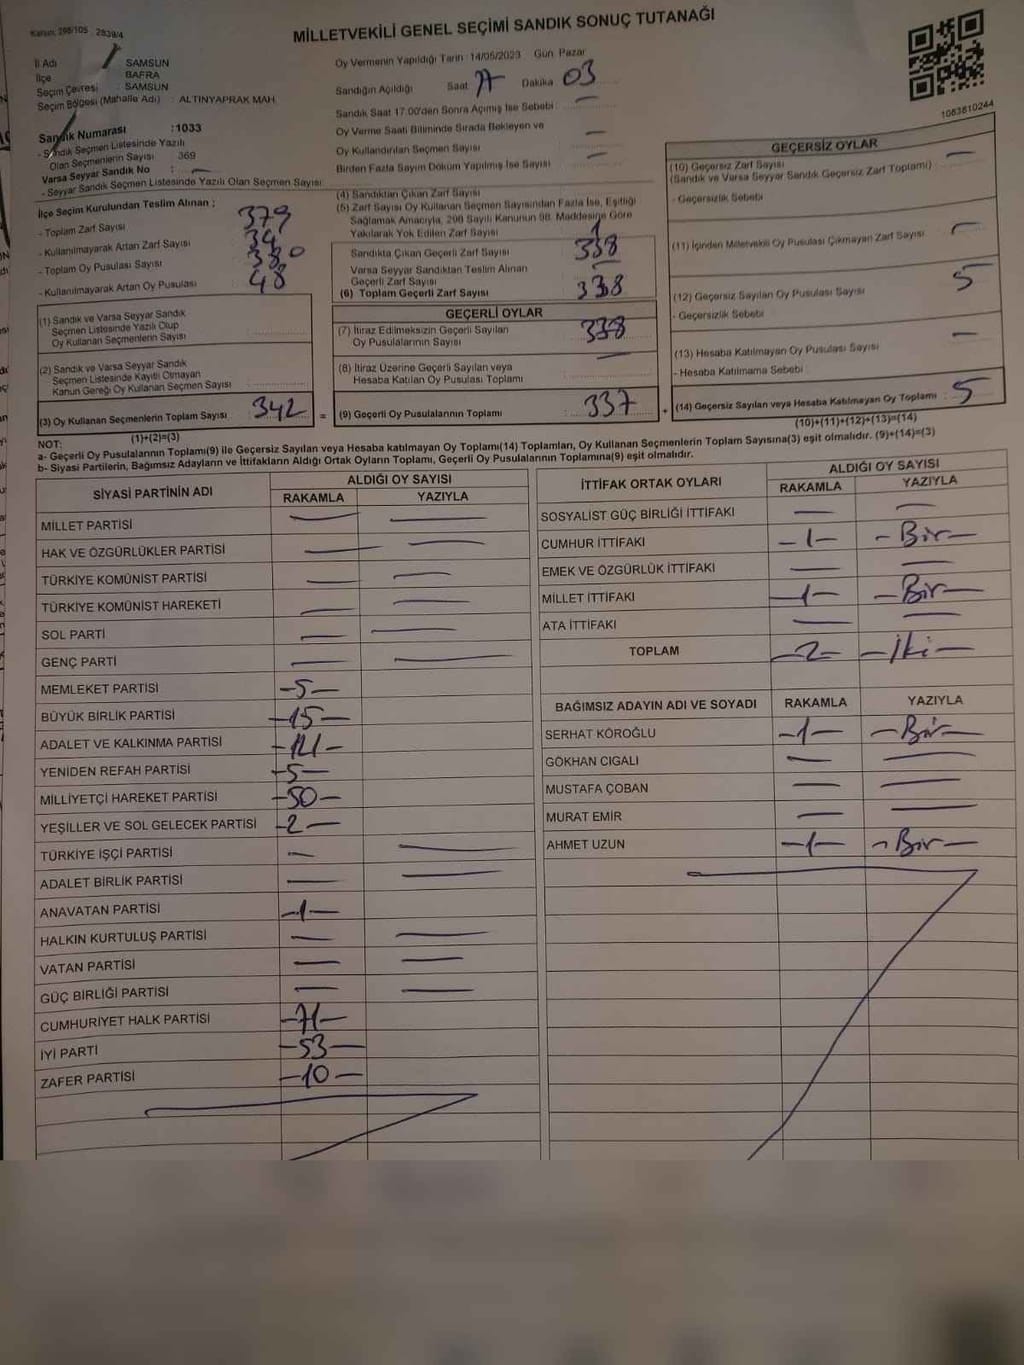 Kanun: 298/105 2839/4
MİLLETVEKİLİ GENEL SEÇİMİ SANDIK SONUÇ TUTANAĞI
İl Adı SAMSUN
İlçe BAFRA
Seçim Çevresi : SAMSUN
Seçim Bölgesi (Mahalle Adı) : ALTINYAPRAK MAH.
Sandık Numarası :1033
- Sandık Seçmen Listesinde Yazılı
Olan Seçmenlerin Sayısı 369
Varsa Seyyar Sandık No : —
- Seyyar Sandık Seçmen Listesinde Yazılı Olan Seçmen Sayısı
İlçe Seçim Kurulundan Teslim Alınan ;
- Toplam Zarf Sayısı 379
- Kullanılmayarak Artan Zarf Sayısı
- Toplam Oy Pusulası Sayısı 380
- Kullanılmayarak Artan Oy Pusulası 48
(1) Sandık ve Varsa Seyyar Sandık
Seçmen Listesinde Yazılı Olup
Oy Kullanan Seçmenlerin Sayısı
(2) Sandık ve Varsa Seyyar Sandık
Seçmen Listesinde Kayıtlı Olmayan
Kanun Gereği Oy Kullanan Seçmen Sayısı
(3) Oy Kullanan Seçmenlerin Toplam Sayısı 342 =
(1)+(2)=(3)
Oy Vermenin Yapıldığı Tarih :14/05/2023 Gün: Pazar
Sandığın Açıldığı Saat 17 Dakika 03
Sandık Saat 17.00'den Sonra Açımış İse Sebebi : —
Oy Verme Saati Bitiminde Sırada Bekleyen ve
Oy Kullandırılan Seçmen Sayısı —
Birden Fazla Sayım Döküm Yapılmış İse Sayısı —
(4) Sandıktan Çıkan Zarf Sayısı
(5) Zarf Sayısı Oy Kullanan Seçmen Sayısından Fazla İse, Eşitliği
Sağlamak Amacıyla, 298 Sayılı Kanunun 98. Maddesine Göre
Yakılarak Yok Edilen Zarf Sayısı
Sandıkta Çıkan Geçerli Zarf Sayısı 338
Varsa Seyyar Sandıktan Teslim Alınan
Geçerli Zarf Sayısı —
(6) Toplam Geçerli Zarf Sayısı 338
GEÇERLİ OYLAR
(7) İtiraz Edilmeksizin Geçerli Sayılan
Oy Pusulalarının Sayısı 338
(8) İtiraz Üzerine Geçerli Sayılan veya
Hesaba Katılan Oy Pusulası Toplamı —
(9) Geçerli Oy Pusulalarının Toplamı : 337 +
1083610244
GEÇERSİZ OYLAR
(10) Geçersiz Zarf Sayısı —
(Sandık ve Varsa Seyyar Sandık Geçersiz Zarf Toplamı)
- Geçersizlik Sebebi
(11) İçinden Milletvekili Oy Pusulası Çıkmayan Zarf Sayısı —
(12) Geçersiz Sayılan Oy Pusulası Sayısı 5
- Geçersizlik Sebebi
(13) Hesaba Katılmayan Oy Pusulası Sayısı —
- Hesaba Katılmama Sebebi
(14) Geçersiz Sayılan veya Hesaba Katılmayan Oy Toplamı : 5
(10)+(11)+(12)+(13)=(14)
NOT:
a- Geçerli Oy Pusulalarının Toplamı(9) ile Geçersiz Sayılan veya Hesaba katılmayan Oy Toplamı(14) Toplamları, Oy Kullanan Seçmenlerin Toplam Sayısına(3) eşit olmalıdır. (9)+(14)=(3)
b- Siyasi Partilerin, Bağımsız Adayların ve İttifakların Aldığı Ortak Oyların Toplamı, Geçerli Oy Pusulalarının Toplamına(9) eşit olmalıdır.
SİYASİ PARTİNİN ADI ALDIĞI OY SAYISI
RAKAMLA YAZIYLA
MİLLET PARTİSİ — —
HAK VE ÖZGÜRLÜKLER PARTİSİ — —
TÜRKİYE KOMÜNİST PARTİSİ — —
TÜRKİYE KOMÜNİST HAREKETİ — —
SOL PARTİ — —
GENÇ PARTİ — —
MEMLEKET PARTİSİ -5-
BÜYÜK BİRLİK PARTİSİ -15-
ADALET VE KALKINMA PARTİSİ
YENİDEN REFAH PARTİSİ -5-
MİLLİYETÇİ HAREKET PARTİSİ -50-
YEŞİLLER VE SOL GELECEK PARTİSİ -2-
TÜRKİYE İŞÇİ PARTİSİ — —
ADALET BİRLİK PARTİSİ — —
ANAVATAN PARTİSİ -1-
HALKIN KURTULUŞ PARTİSİ — —
VATAN PARTİSİ — —
GÜÇ BİRLİĞİ PARTİSİ — —
CUMHURİYET HALK PARTİSİ -71-
İYİ PARTİ -53-
ZAFER PARTİSİ -10-
İTTİFAK ORTAK OYLARI ALDIĞI OY SAYISI
RAKAMLA YAZIYLA
SOSYALIST GÜÇ BİRLİĞİ İTTİFAKI — —
CUMHUR İTTİFAKI -1- -Bir-
EMEK VE ÖZGÜRLÜK İTTİFAKI — —
MİLLET İTTİFAKI -1- -Bir-
ATA İTTİFAKI — —
TOPLAM -2- -İki-
BAĞIMSIZ ADAYIN ADI VE SOYADI RAKAMLA YAZIYLA
SERHAT KÖROĞLU -1- -Bir-
GÖKHAN CIGALI — —
MUSTAFA ÇOBAN — —
MURAT EMİR — —
AHMET UZUN -1- -Bir-